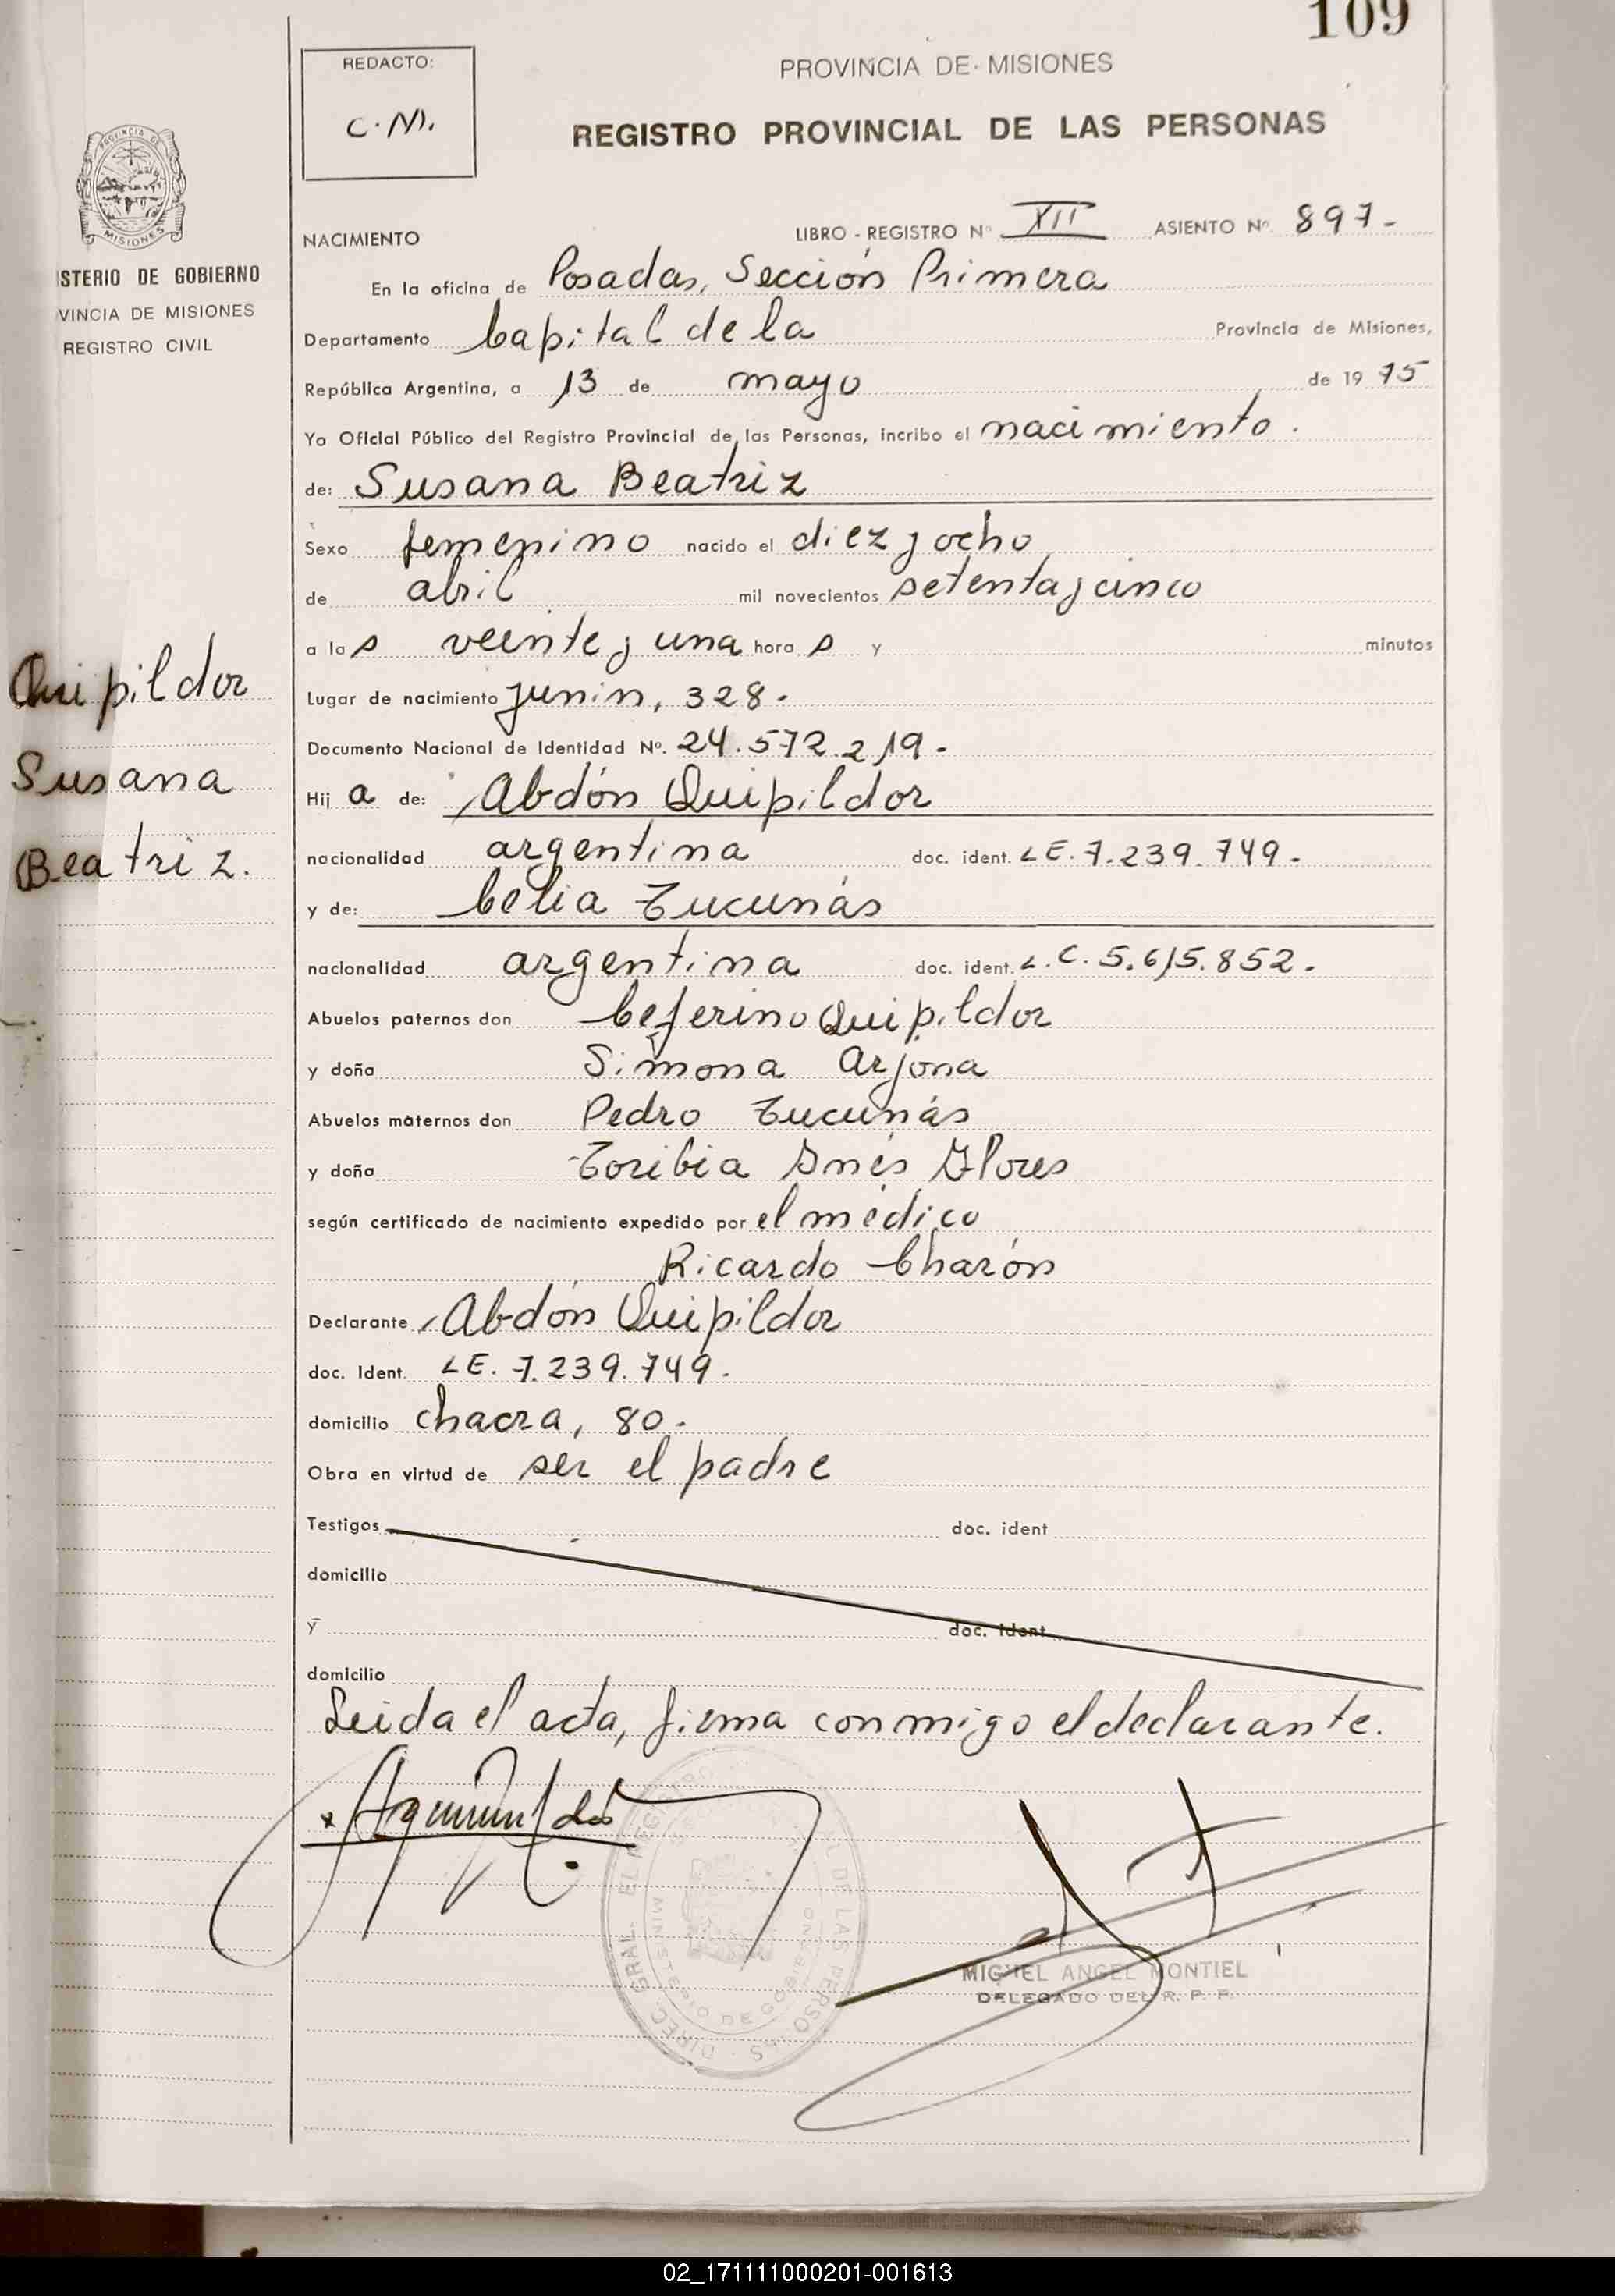 109
REDACTO:
C. M.
PROVINCIA DE MISIONES
REGISTRO PROVINCIAL DE LAS PERSONAS
PROVINCIA DE
MISIONES
ISTERIO DE GOBIERNO
VINCIA DE MISIONES
REGISTRO CIVIL
NACIMIENTO LIBRO - REGISTRO Nº XII ASIENTO Nº 897-
En la oficina de Posadas, Sección Primera
Departamento Capital de la Provincia de Misiones,
República Argentina, a 13 de mayo de 19 75
Yo Oficial Público del Registro Provincial de las Personas, incribo el nacimiento.
de: Susana Beatriz
Sexo femenino nacido el diez y ocho
de abril mil novecientos setenta y cinco
a las veinte y una horas y minutos
Quipildor
Susana
Beatriz.
Lugar de nacimiento Junin, 328-
Documento Nacional de Identidad Nº. 24.572.219-
Hij a de: Abdón Quipildor
nacionalidad argentina doc. ident. LE. 7.239.749-
y de: Celia Tucunás
nacionalidad argentina doc. ident. L.C. 5.615.852.
Abuelos paternos don Ceferino Quipildor
y doña Simona Arjona
Abuelos maternos don Pedro Tucunás
y doña Toribia Inés Flores
según certificado de nacimiento expedido por el médico
Ricardo Charón
Declarante Abdón Quipildor
doc. Ident. LE. 7.239.749-
domicilio chacra, 80-
Obra en virtud de ser el padre
Testigos doc. ident
domicilio
y doc. ident
domicilio
Leida el acta, firma conmigo el declarante.
DIREC. GRAL. EL REGISTRO DE LAS PERSO AS
MINISTERIO DE GOBIERNO
MIGUEL ANGEL MONTIEL
DELEGADO DEL R. P. P.
02_171111000201-001613